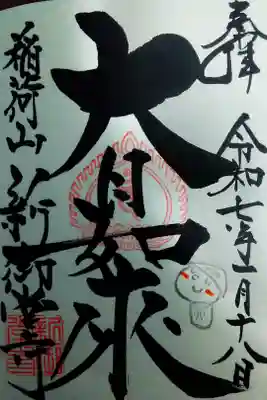 奉拝
令和七年一月十八日
大日如来
稲荷山 新御堂寺